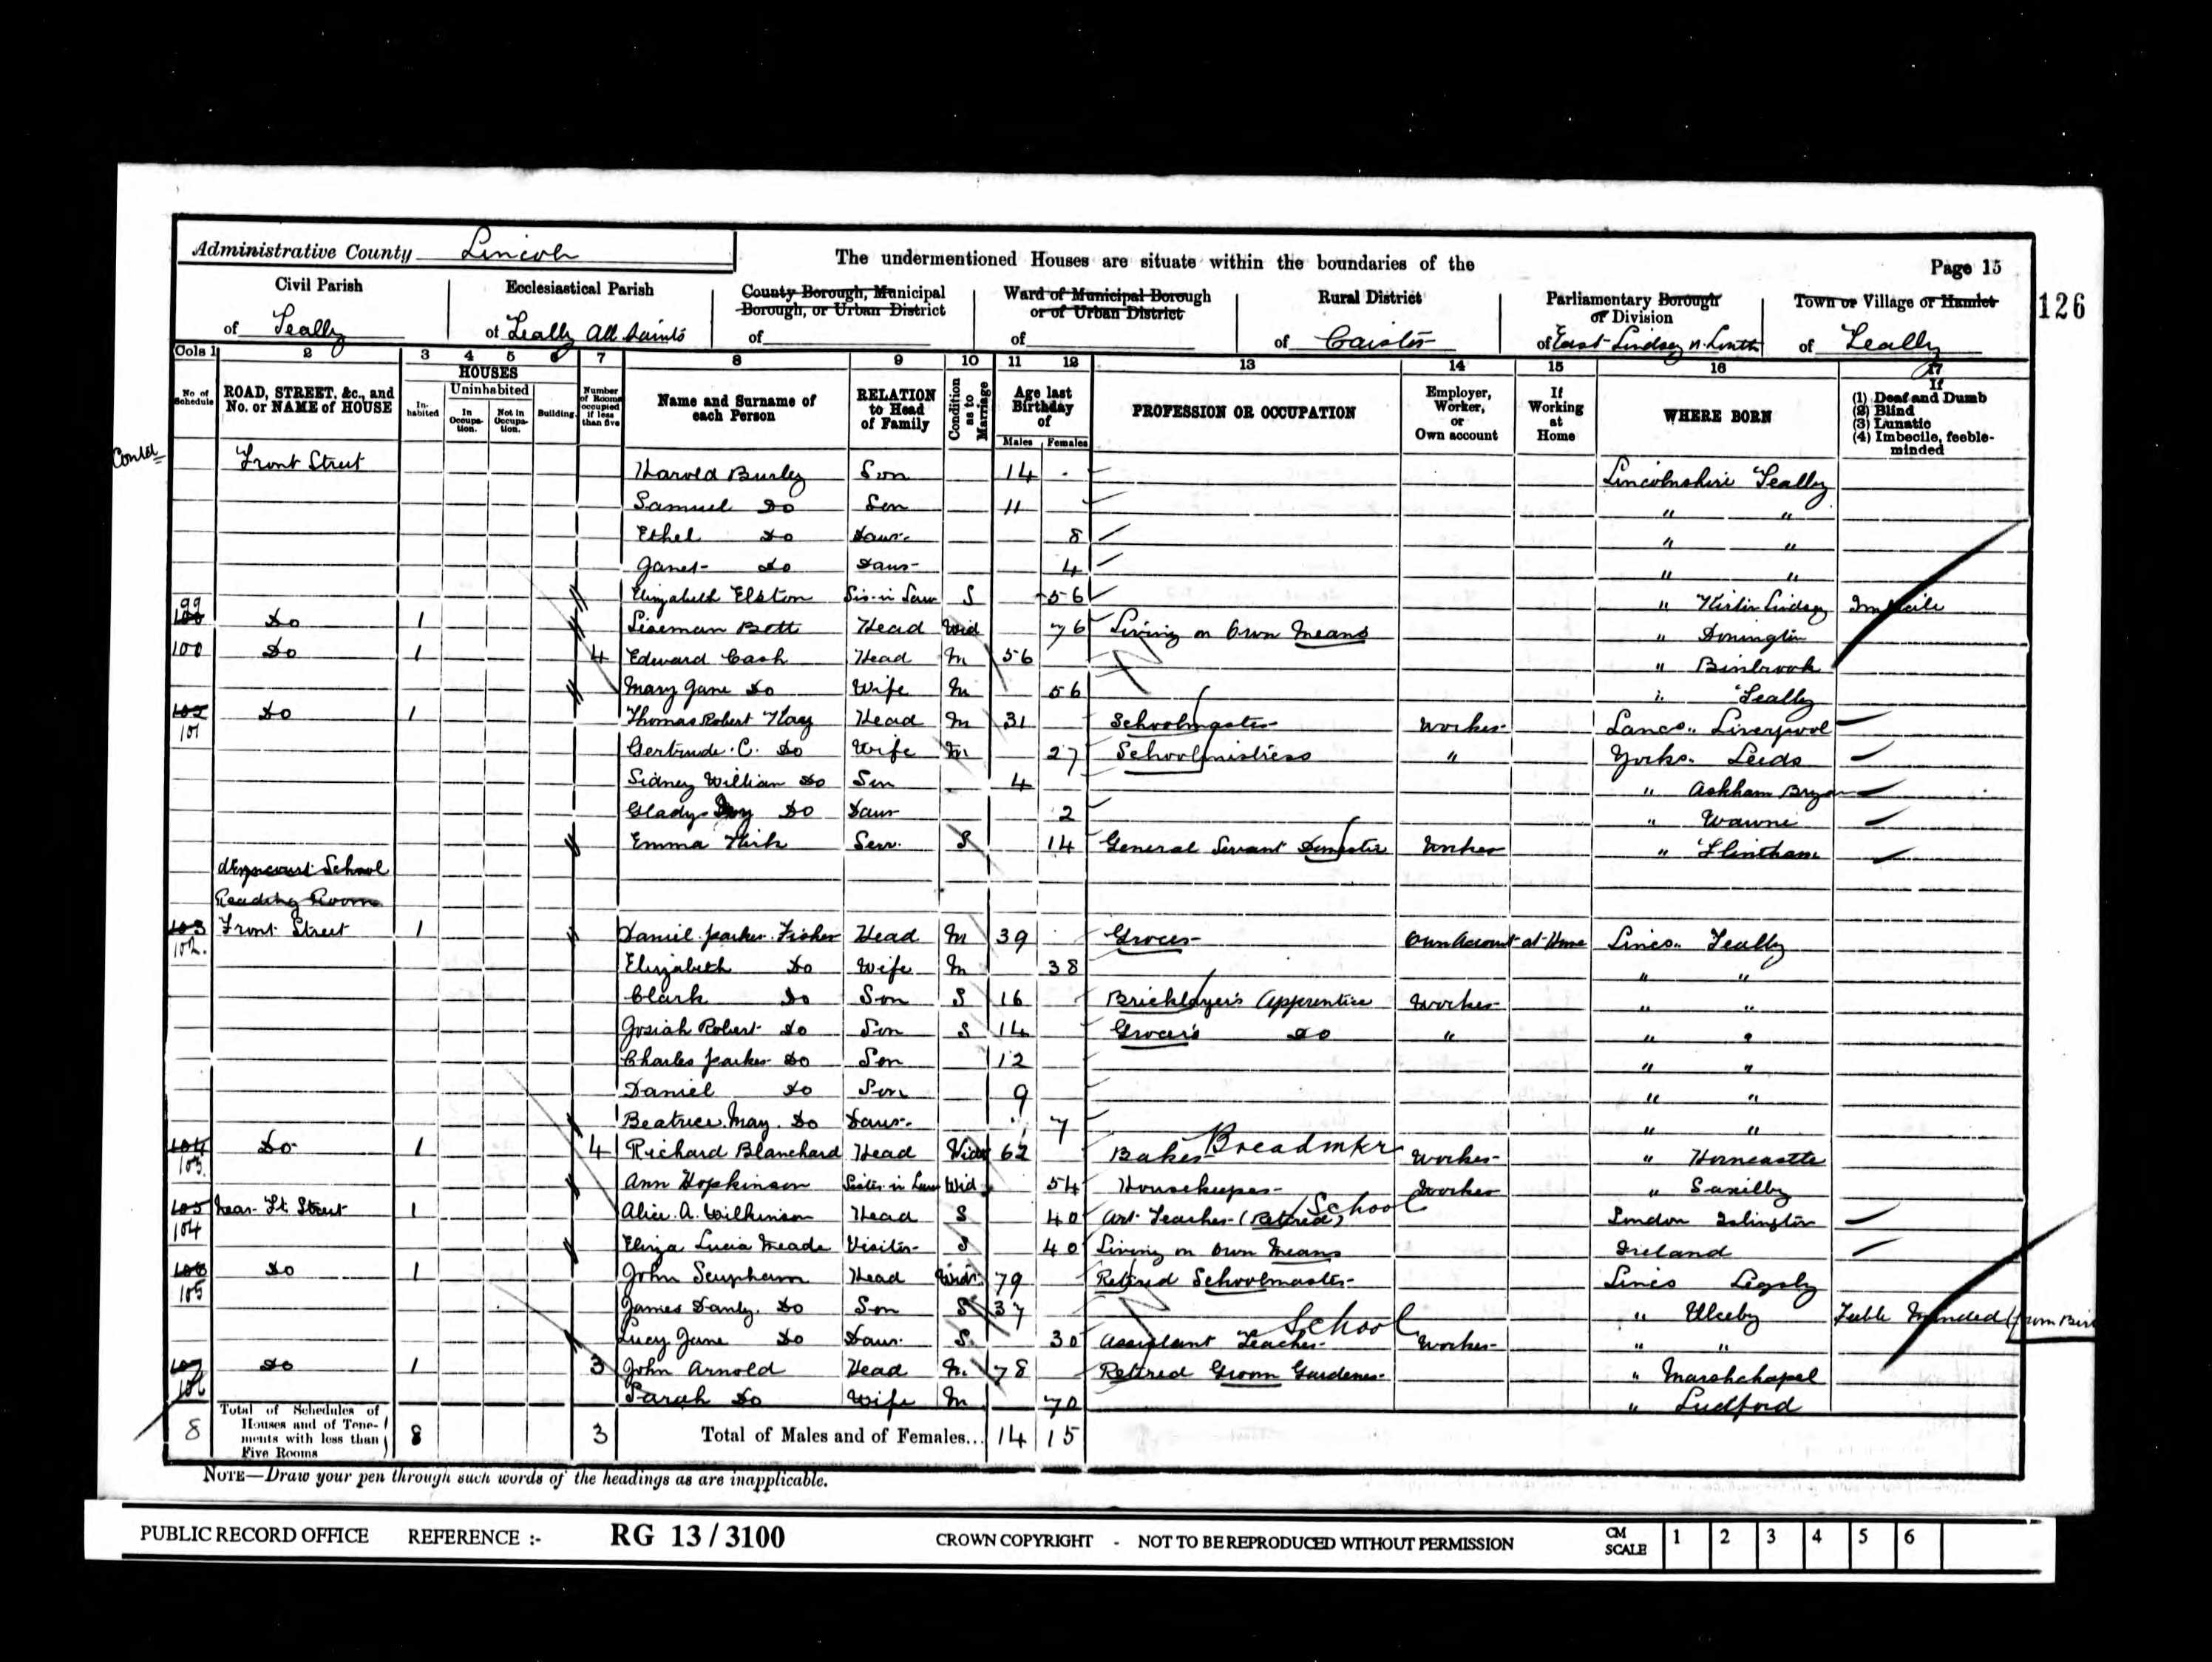 Administrative County Lincoln
The undermentioned Houses are situate within the boundaries of the
Page 15
126
Civil Parish of Tealby
Ecclesiastical Parish of Tealby All Saints
County Borough, Municipal Borough, or Urban District of
Ward of Municipal Borough or of Urban District of
Rural District of Caistor
Parliamentary Borough or Division of East Lindsey n. Louth
Town or Village or Hamlet of Tealby
Cols 1 2 3 4 5 6 7 8 9 10 11 12 13 14 15 16 17
No of Schedule
ROAD, STREET, &c., and No. or NAME of HOUSE
HOUSES
In-habited
Uninhabited
In Occupa-tion.
Not in Occupa-tion.
Building
Number of Rooms occupied if less than five
Name and Surname of each Person
RELATION to Head of Family
Condition as to Marriage
Age last Birthday of
Males Females
PROFESSION OR OCCUPATION
Employer, Worker, or Own account
If Working at Home
WHERE BORN
If (1) Deaf and Dumb (2) Blind (3) Lunatic (4) Imbecile, feeble-minded
Contd Front Street Harold Burley Son 14 Lincolnshire Tealby
Samuel Do Son 11 " "
Ethel Do Daur. 8 " "
Janet Do Daur 4 " "
Elizabeth Elston Sis-in Law S 56 " Kirton Lindsey Imbecile
99 100 Do 1 Bett Head Wid 76 Living on Own Means " Donington
100 Do 1 4 Edward Cash Head M 56 " Binbrook
Mary Jane Do Wife M 56 " Tealby
102 101 Do 1 Thomas Robert Head M 31 Schoolmaster Worker Lancs.. Liverpool
Gertrude. C. Do Wife M 27 Schoolmistress " Yorks. Leeds
Sidney William Do Son 4 " Askham Bryan
Gladys Do Daur 2 " Wawne
Emma Kirk Serv. S 14 General Servant Domestic Worker " Flintham
School
Reading Room
103 102. Front Street 1 Daniel Parker Fisher Head M 39 Grocer Own Account at Home Lincs.. Tealby
Elizabeth Do Wife M 38 " "
Clark Do Son S 16 Bricklayer's Apprentice Worker " "
Josiah Robert Do Son S 14 Grocer's Do " " "
Charles Parker Do Son 12 " "
Daniel Do Son 9 " "
Beatrice May. Do Daur. 7 " "
104 103. Do 1 4 Richard Blanchard Head Widr 62 Baker Breadmkr Worker " Horncastle
Ann Hopkinson Sister in Law Wid 54 Housekeeper Worker " Saxilby
105 104 Near Ft. Street 1 Alice. A. Wilkinson Head S 40 Art Teacher (Retired) School London Islington
Eliza Lucia Meade Visitor S 40 Living on Own Means Ireland
106 105 Do 1 John Scupham Head Widr. 79 Retired Schoolmaster Lincs Legsby
James Danby. Do Son S 37 " Ulceby Feeble Minded (from Bir
Lucy Jane Do Daur. S. 30 Assistant Teacher School Worker " "
107 106 Do 1 3 John Arnold Head M. 78 Retired Groom Gardener " Marshchapel
Sarah Do Wife M 70 " Ludford
8 Total of Schedules of Houses and of Tene-ments with less than Five Rooms 8 3 Total of Males and of Females... 14 15
NOTE—Draw your pen through such words of the headings as are inapplicable.
PUBLIC RECORD OFFICE REFERENCE :- RG 13 / 3100 CROWN COPYRIGHT - NOT TO BE REPRODUCED WITHOUT PERMISSION CM SCALE 1 2 3 4 5 6